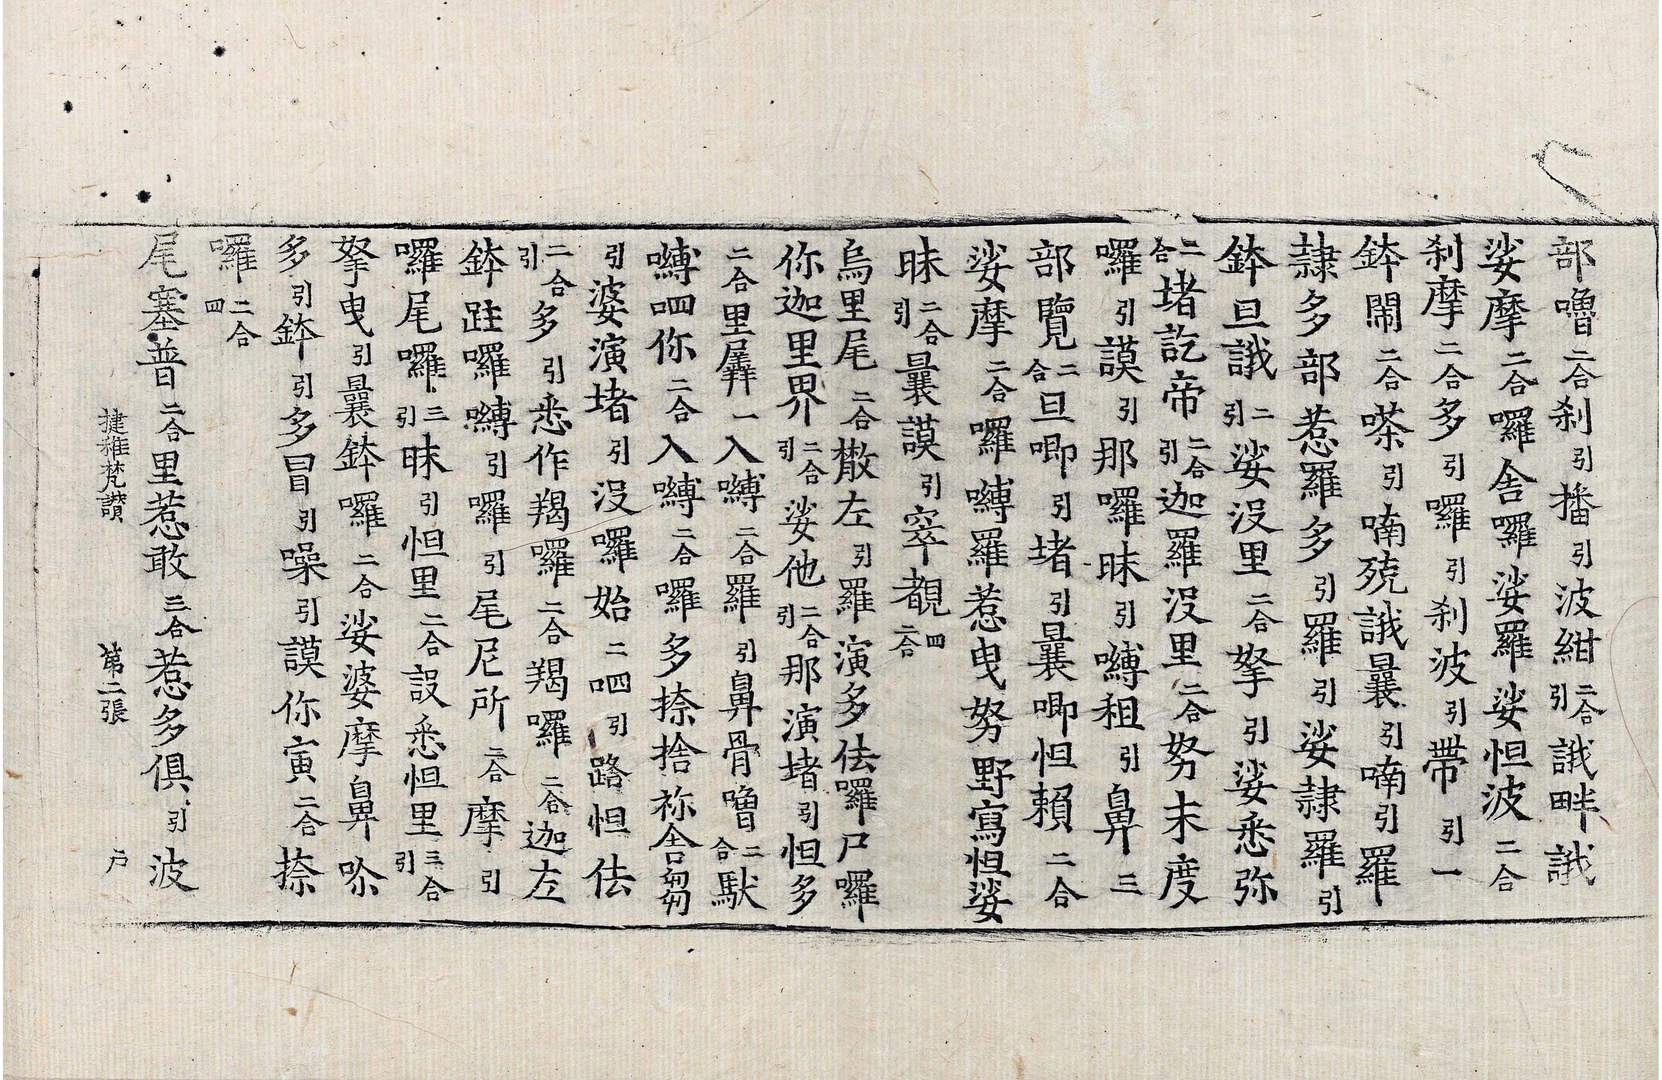 部嚕二合刹引播引波紺二合引誐畔誐
娑摩二合囉舍囉娑羅娑怛波二合
刹摩二合多引囉引刹波引帶引一
鉢閙二合嗏引喃㱡誐曩引喃引羅
隷多部惹羅多引羅引娑隷羅引
鉢旦誐二引娑没里二合拏引娑悉弥
二合堵訖帝二合引迦羅没里二合努末度
囉引謨引那囉昧引嚩祖引鼻三
部覽二合旦唧引堵引曩唧怛賴二合
娑摩二合囉嚩羅惹曳努野寫怛娑
昧二合引曩謨引窣覩二合四
烏里尾二合橵左引羅演多佉囉尸囉
你迦里界二合引娑他二合引那演堵引怛多
二合里㞕一入嚩二合羅引鼻骨嚕二合馱
嚩呬你二合入嚩二合囉多捺捨祢舍芻
引婆演堵引没囉始二呬引路怛佉
二合引多引悉作羯囉二合羯囉二合迦左
鉢跓囉嚩引囉引尾尼所二合摩引
囉尾囉三引昧引怛里二合設悉怛里三合引
拏曳引曩鉢囉二合娑婆摩鼻吩
多引鉢引多冒引噪引謨你寅二合捺
囉二合四
尾塞普二合里惹敢三合惹多俱引波
揵稚梵讃 第二張 户